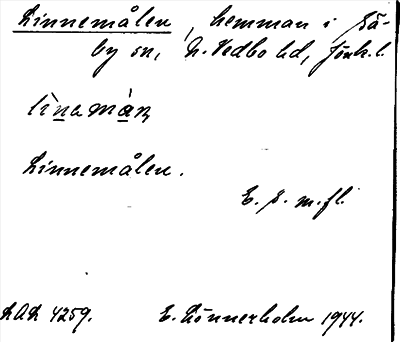 Linnemålen, hemman i Sä-
by sn, N. Vedbo hd, Jönk. l.
Linnemålen.
E. S. m.fl.
LAL 4259. E. Lönnerholm 1944.